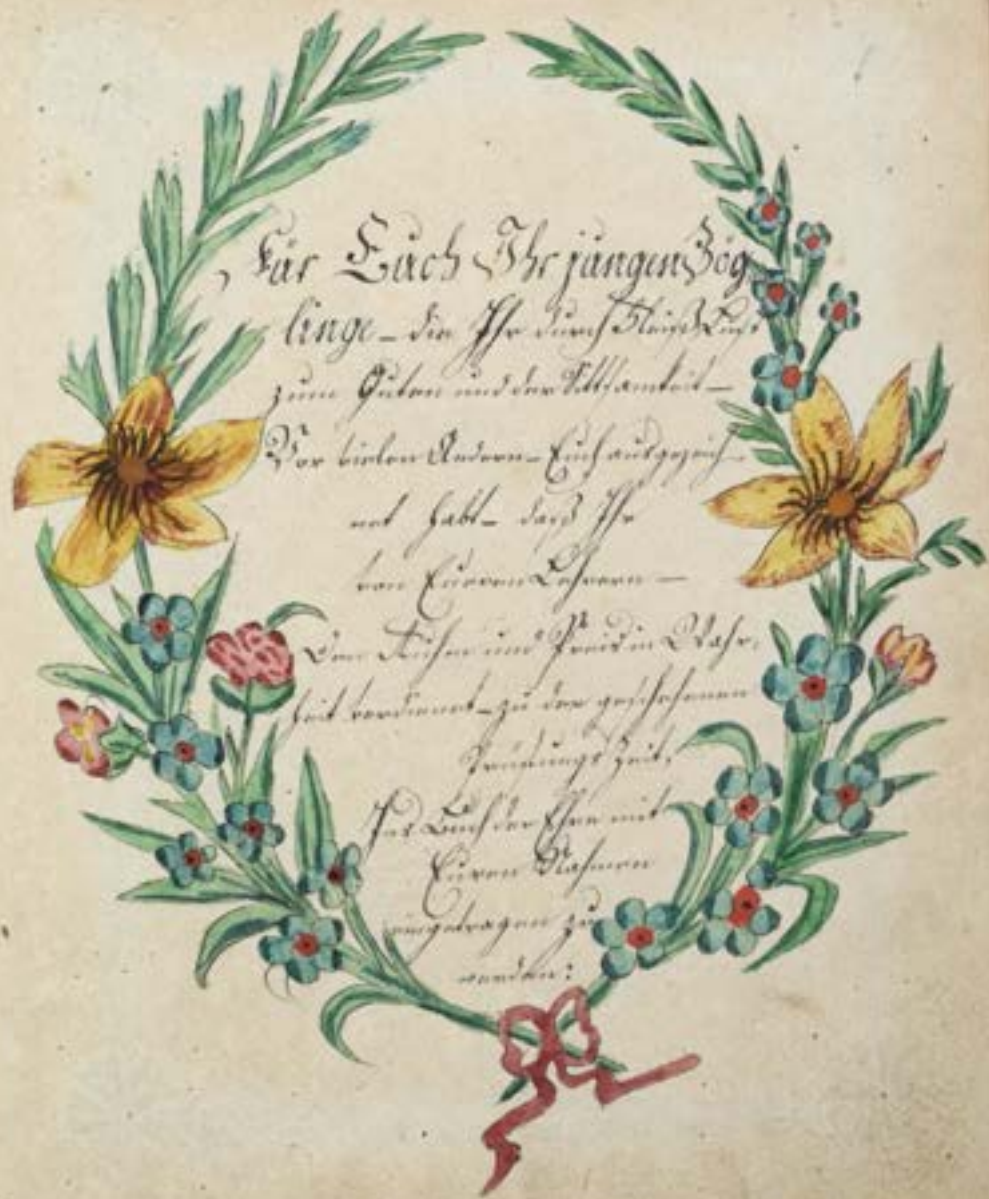 Für Euch Ihr jungen Zög
linge – die Ihr durch Fleiß Lust
zum Guten und der Sittsamkeit –
Vor vielen Andern – Euch ausgezeich
net habt – daß Ihr
von Euren Lehrern –
Den Ruhm und Preis in Wahr,
heit verdient – zu der geschehenen
Prüfungs Zeit,
Ins Buch der Ehre mit
Euren Nahmen
eingetragen zu
werden: